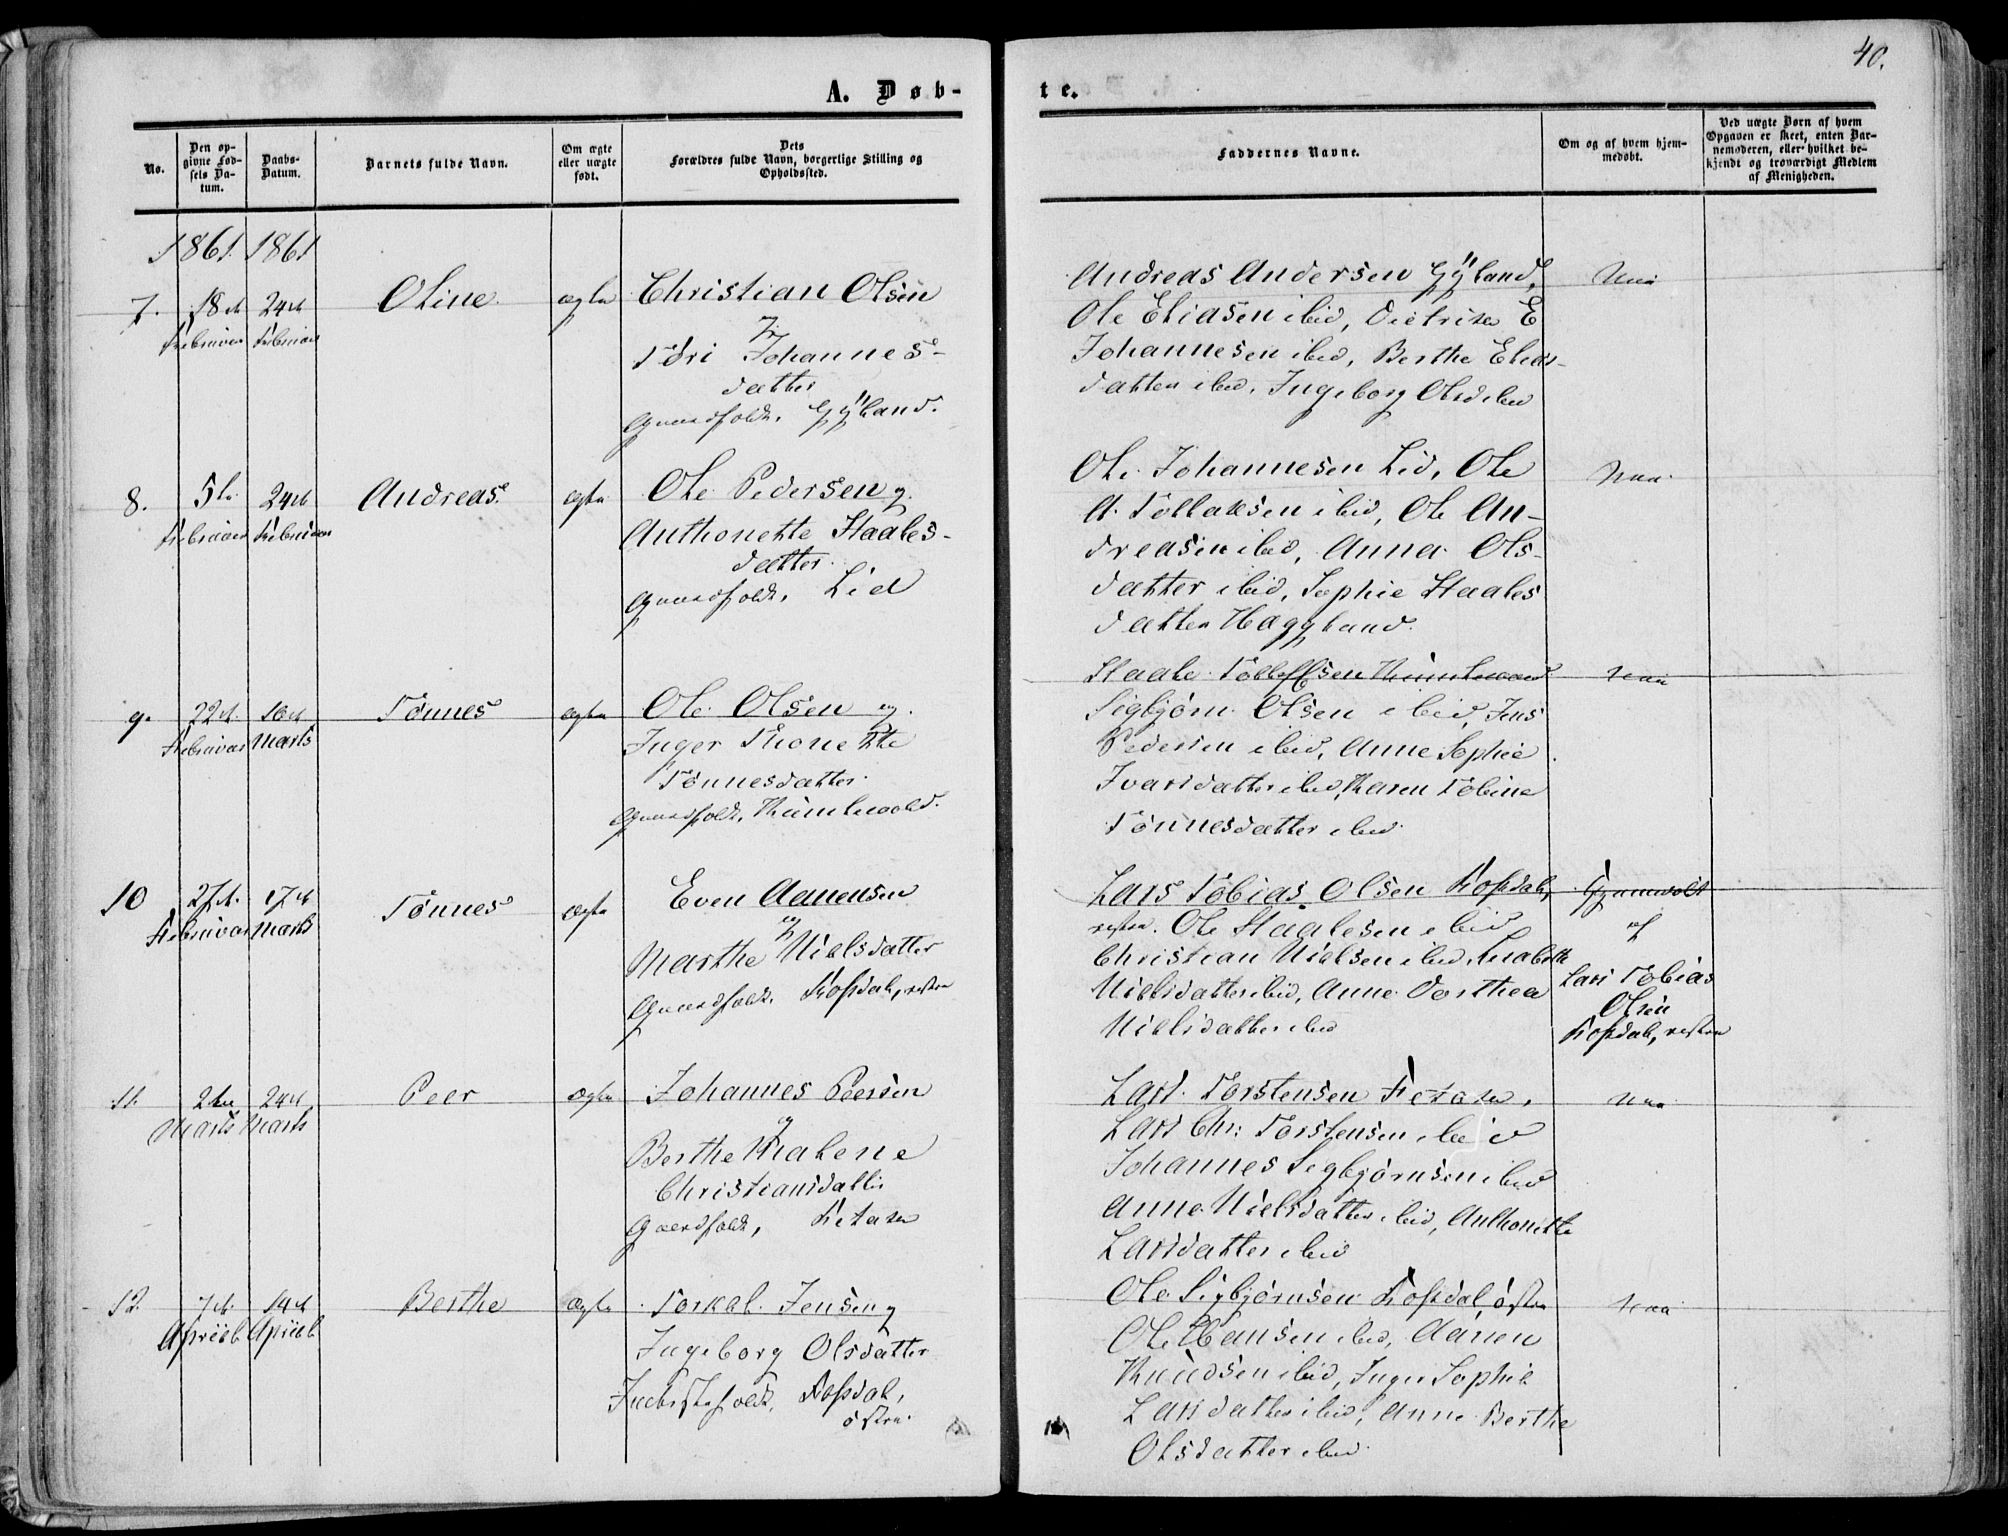 40.
A. Døb-
te.
No.
Den op-
givne Fød-
sels Da-
tum.
Daabs-
Datum.
Barnets fulde Navn.
Om ægte
eller uægte
født.
Dets
Forældres fulde Navn, borgerlige Stilling og
Opholdssted.
Faddernes Navne.
Om og af hvem hjem-
medøbt.
Ved uægte Børn af hvem
Opgaven er skeet, enten Bar-
nemoderen, eller hvilket be-
kjendt og troværdigt Medlem
af Menigheden.
1861. 1861
7.
18de
Februar
24de
Februar
Oline
ægte
Christian Olsen
og
Töri Johannes-
datter
Gaardfolk. Gÿland.
Andreas Andersen Gÿland,
Ole Eliasen ibid, E
Johannesen ibid, Berthe Elias-
datter ibid, Ingeborg Olsd ibid
Nei
8.
5te
Februar
24de
Februar
Andreas
ægte
Ole Pedersen og
Anthonette Staales-
datter
Gaardfolk, Lid
Ole Johannesen Lid, Ole
A. Tollaksen ibid, Ole An-
dreasen ibid, Anna Ols-
datter ibid, Sophie Staales
datter Haggland.
Nei
9.
22de
Februar
10de
Marts
Tønnes
ægte
Ole Olsen og
Inger Thonette
Tønnesdatter
Gaardfolk,
Staale Tollefsen
Sigbjørn Olsen ibid, Jens
Pedersen ibid, Anne Sophie
Ivarsdatter ibid, Karen Tobine
Tønnesdatter ibid
Nei
10
27de
Februar
17de
Marts
Tønnes
ægte
Even Aanensen
og
Marthe Nielsdatter
Gaardfolk. Rosdal, vestre
Lars Tobias Olsen Rosdal,
vestre. Ole Staalesen ibid
Christian Nielsen ibid,
Nielsdatter ibid, Anne Dorthea
Nielsdatter ibid
af
Lars Tobias
Olsen
Rosdal, vestre
11.
2den
Marts
24de
Marts
Peer
ægte
Johannes Peersen
og
Berthe Malene
Christiansdatter
Gaardfolk, Fetaen
Lars Torstensen Fetaen,
Lars Chr: Torstensen ibid
Johannes Segbjørnsen ibid
Anne Nielsdatter ibid, Anthonette
Larsdatter ibid
Nei
12.
7de
Apriil
14de
Apriil
Berthe
ægte
Torkel Jensen og
Ingeborg Olsdatter
Inderstefolk, Rosdal,
østre.
Ole Sigbjørnsen Rosdal, østre
Ole Hansen ibid, Aanen
Knudsen ibid, Inger Sophie
Larsdatter ibid, Anne Berthe
Olsdatter ibid
Nei